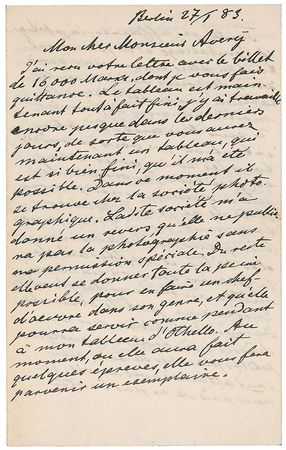 Berlin 27/1 83.
Mon cher Monsieur Avery
J'ai reçu votre lettre avec le billet
de 16000 Marks, dont je vous fais
quittance. Le tableau est main-
tenant tout à fait fini, j'y ai travaillé
encore jusque dans les derniers
jours, de sorte que vous aurez
maintenant un tableau, qui
est si bien fini, qu'il m'a été
possible. Dans ce moment il
se trouve chez la société photo-
graphique. Ladite société m'a
donné un revers qu'elle ne publie-
ra pas la photographie sans
ma permission spéciale. Du reste
elle veut se donner toute la peine
possible, pour en faire un chef
d'oeuvre dans son genre, et qu'elle
pourra servir comme pendant
à mon tableau d'Othello. Au
moment, ou elle aura fait
quelques épreuves, elle vous fera
parvenir un exemplaire.